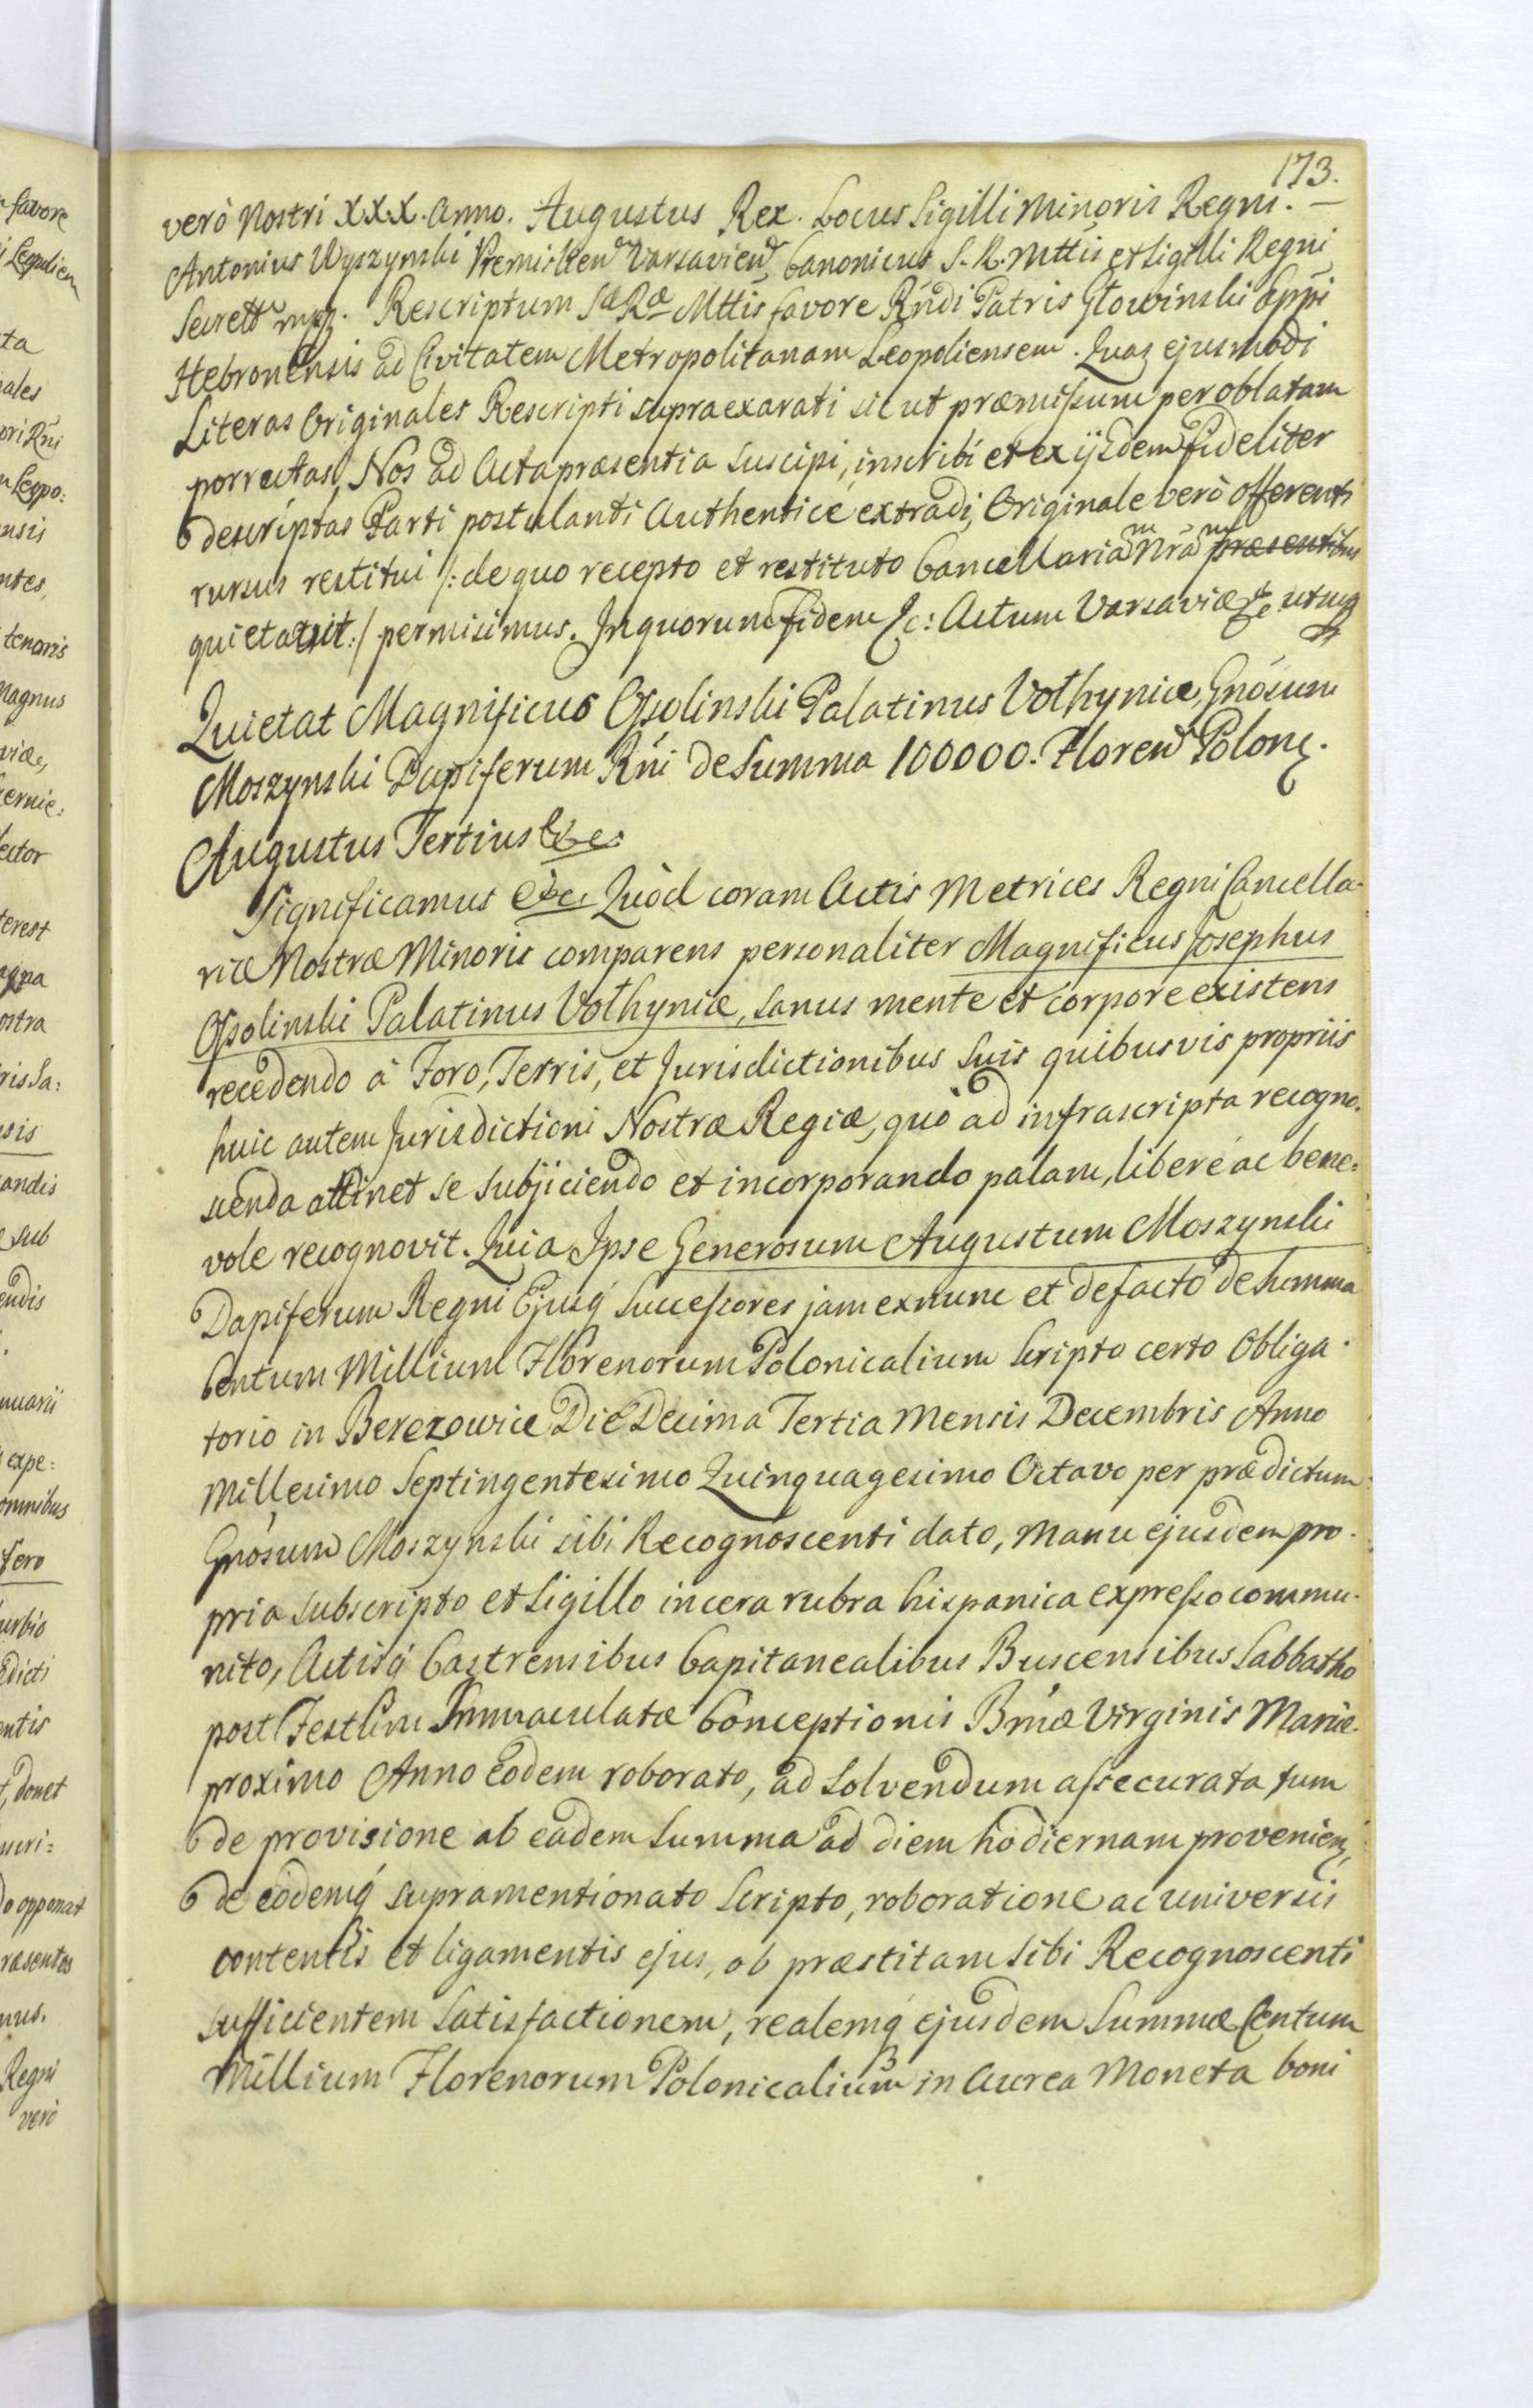 173.
verò Nostri XXX. Anno. Augustus Rex. Locus Sigilli Minoris Regni. —
Antonius Wyszynski Premislien Varsavien Canonicus S. R. Mttis et Sigilli Regni
Secrett mpp. Rescriptum Sæ Ræ Mttis favore Rndi Patris Głowinski Eppi
Hebronensis ad Civitatem Metropolitanam Leopoliensem. Quas ejusmodi
Literas Originales Rescripti supraexarati sic ut præmissum per oblatam
porrectas, Nos ad Acta præsentia suscipi, inscribi et ex ijsdem fideliter
descriptas Parti postulanti Authenticè extradi, Originale verò offerenti
rursus restitui /: de quo recepto et restituto Cancellariam Nram præsentibus
quietavit :/ permisimus. In quorum fidem &c: Actum Varsaviæ &c ut supra
Quietat Magnificus Ossolinski Palatinus Vołhyniæ, Gnosum
Moszynski Dapiferum Rni de Summa 100000. Floren Polon.
Augustus Tertius &c.
Significamus &c. Quòd coram Actis Metrices Regni Cancella-
riæ Nostræ Minoris comparens personaliter Magnificus Josephus
Ossolinski Palatinus Vołhyniæ, sanus mente et corpore existens
recedendo à Foro, Terris, et Jurisdictionibus suis quibusvis propriis
huic autem Jurisdictioni Nostræ Regiæ, quò ad infrascripta recogno-
scenda attinet se subjiciendo et incorporando palam, liberè ac bene-
vole recognovit. Quia Ipse Generosum Augustum Moszynski
Dapiferum Regni Ejusq́ Successores jam exnunc et defacto de Summa
Centum Millium Florenorum Polonicalium Scripto certo Obliga-
torio in Berezowice Die Decima Tertia Mensis Decembris Anno
Millesimo Septingentesimo Quinquagesimo Octavo per prædictum
Gnosum Moszynski sibi Recognoscenti dato, Manu ejusdem pro-
pria subscripto et Sigillo in cera rubra hispanica expresso commu-
nito, Actisq́ Castrensibus Capitanealibus Buscensibus Sabbatho
post Festum Immaculatæ Conceptionis Bmæ Virginis Mariæ
proximo Anno eodem roborato, ad solvendum assecurata tum
de provisione ab eadem Summa ad diem hodiernam provenien,
de eodemq́ supramentionato Scripto, roboratione ac universis
contentis et ligamentis ejus, ob præstitam sibi Recognoscenti
sufficientem satisfactionem, realemq́ ejusdem Summæ Centum
Millium Florenorum Polonicalium in Aurea Moneta boni